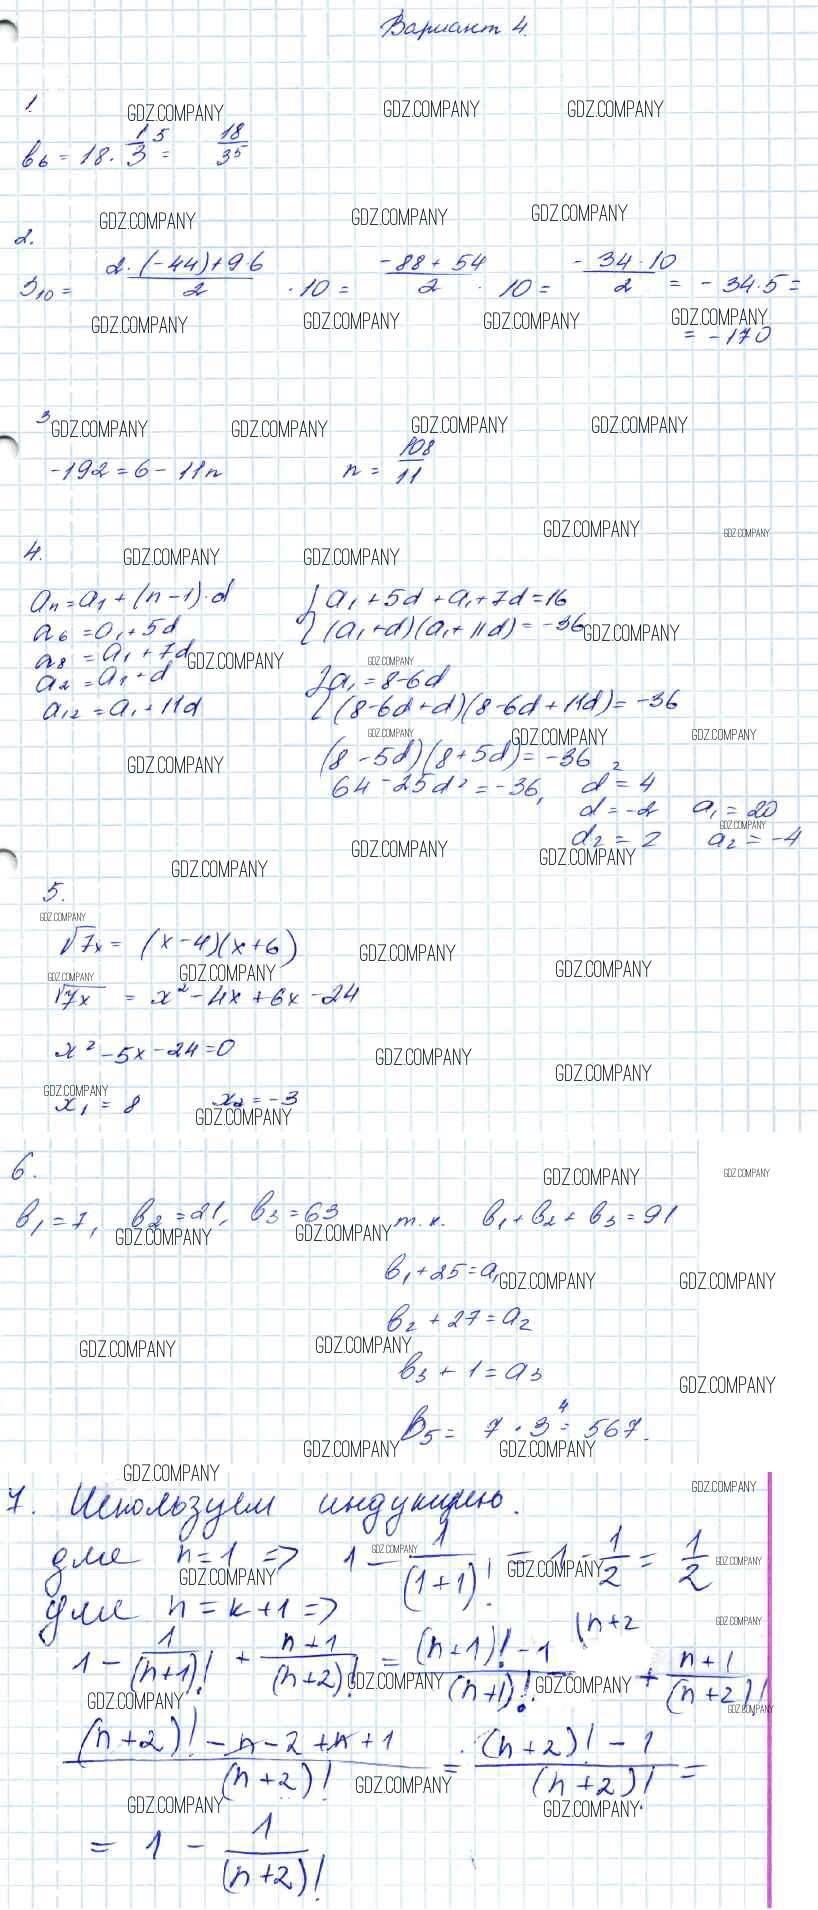 Вариант 4.
1.
GDZ.COMPANY GDZ.COMPANY GDZ.COMPANY
b₆ = 18 · 1/3⁵ = 18/3⁵
GDZ.COMPANY GDZ.COMPANY GDZ.COMPANY
2.
S₁₀ = (2·(-44)+9·6)/2 · 10 = (-88+54)/2 · 10 = (-34·10)/2 = -34·5 =
GDZ.COMPANY GDZ.COMPANY GDZ.COMPANY GDZ.COMPANY
= -170
3
GDZ.COMPANY GDZ.COMPANY GDZ.COMPANY GDZ.COMPANY
-192 = 6 - 11n n = 108/11
GDZ.COMPANY GDZ.COMPANY
4.
GDZ.COMPANY GDZ.COMPANY
aₙ = a₁ + (n-1)·d { a₁ + 5d + a₁ + 7d = 16
a₆ = a₁ + 5d { (a₁+d)(a₁+11d) = -36
GDZ.COMPANY
a₈ = a₁ + 7d
GDZ.COMPANY GDZ.COMPANY
a₂ = a₁ + d { a₁ = 8-6d
a₁₂ = a₁ + 11d { (8-6d+d)(8-6d+11d) = -36
GDZ.COMPANY GDZ.COMPANY GDZ.COMPANY
(8-5d)(8+5d) = -36
GDZ.COMPANY
64 - 25d² = -36, d² = 4
d = -2 a₁ = 20
GDZ.COMPANY
d₂ = 2 a₂ = -4
GDZ.COMPANY GDZ.COMPANY GDZ.COMPANY
5.
GDZ.COMPANY
√7x = (x-4)(x+6)
GDZ.COMPANY GDZ.COMPANY
GDZ.COMPANY GDZ.COMPANY
√7x = x² - 4x + 6x - 24
x² - 5x - 24 = 0
GDZ.COMPANY GDZ.COMPANY
GDZ.COMPANY
x₁ = 8 x₂ = -3
GDZ.COMPANY
6.
GDZ.COMPANY GDZ.COMPANY
b₁ = 7, b₂ = 21, b₃ = 63 т.к. b₁ + b₂ + b₃ = 91
GDZ.COMPANY GDZ.COMPANY
b₁ + 25 = a₁
GDZ.COMPANY GDZ.COMPANY
b₂ + 27 = a₂
GDZ.COMPANY GDZ.COMPANY
b₃ + 1 = a₃
GDZ.COMPANY
B₅ = 7 · 3⁴ = 567.
GDZ.COMPANY GDZ.COMPANY
GDZ.COMPANY GDZ.COMPANY
7. Используем индукцию.
для n=1 => 1 - 1/(1+1)! = 1 - 1/2 = 1/2
GDZ.COMPANY GDZ.COMPANY GDZ.COMPANY GDZ.COMPANY
для n = k+1 =>
(n+2
GDZ.COMPANY
1 - 1/(n+1)! + (n+1)/(n+2)! = ((n+1)! - 1)/(n+1)! + (n+1)/(n+2)!
GDZ.COMPANY GDZ.COMPANY GDZ.COMPANY GDZ.COMPANY
((n+2)! - n - 2 + n + 1)/(n+2)! = ((n+2)! - 1)/(n+2)! =
GDZ.COMPANY GDZ.COMPANY GDZ.COMPANY
= 1 - 1/(n+2)!